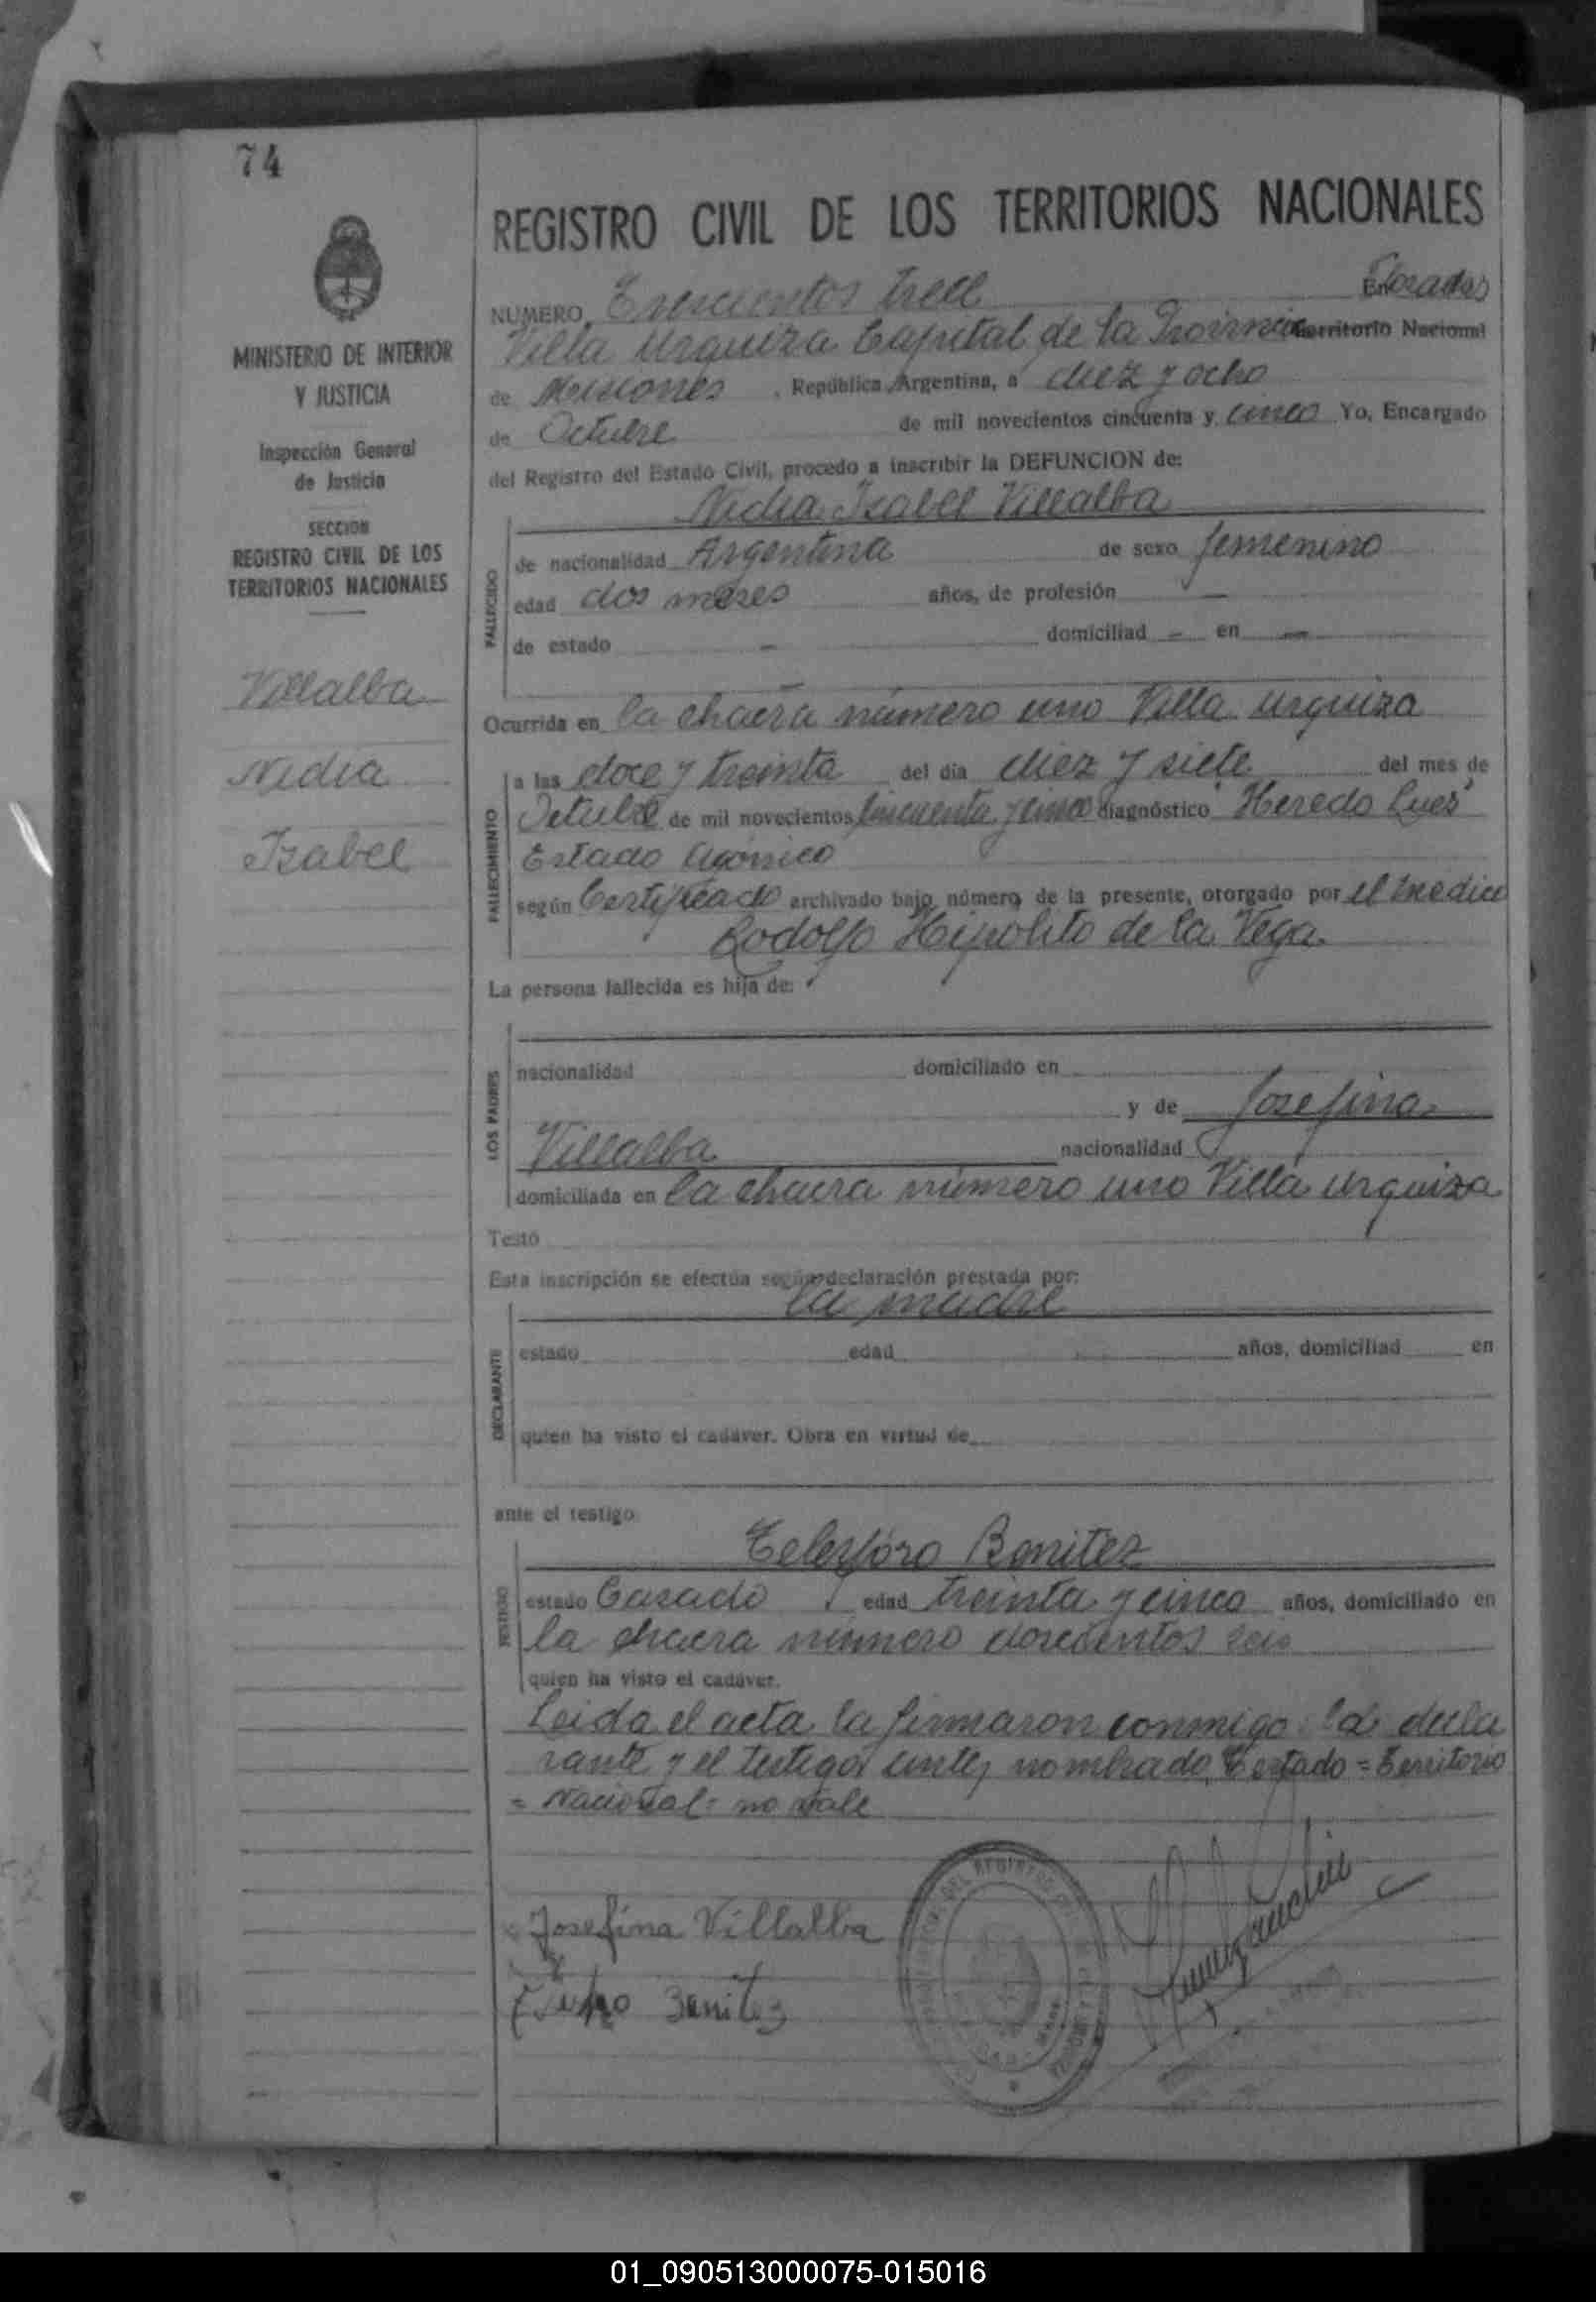 74
REGISTRO CIVIL DE LOS TERRITORIOS NACIONALES
MINISTERIO DE INTERIOR
Y JUSTICIA
Inspección General
de Justicia
SECCION
REGISTRO CIVIL DE LOS
TERRITORIOS NACIONALES
Villalba
Nidia
Izabel
NUMERO Trescientos trece En Posadas
Villa Urquiza Capital de la Provincia Territorio Nacional
de Misiones, República Argentina, a diez y ocho
de Octubre de mil novecientos cincuenta y cinco Yo, Encargado
del Registro del Estado Civil, procedo a inscribir la DEFUNCION de:
Nidia Izabel Villalba
FALLECIDO
de nacionalidad Argentina de sexo femenino
edad dos meses años, de profesión —
de estado — domiciliad — en —
Ocurrida en la chacra número uno Villa Urquiza
FALLECIMIENTO
a las doce y treinta del día diez y siete del mes de
Octubre de mil novecientos cincuenta y cinco diagnóstico "Heredo Lues"
Estado Agónico
según Certificado archivado bajo número de la presente, otorgado por el medico
Rodolfo Hipolito de la Vega
La persona fallecida es hija de:
LOS PADRES
nacionalidad domiciliado en
y de Josefina
Villalba nacionalidad
domiciliada en la chacra número uno Villa Urquiza
Testó
Esta inscripción se efectúa según declaración prestada por:
la madre
DECLARANTE
estado edad años, domiciliad en
quien ha visto el cadáver. Obra en virtud de
ante el testigo
Telesforo Benitez
TESTIGO
estado Casado edad treinta y cinco años, domiciliado en
la chacra número doscientos seis
quien ha visto el cadáver.
Leida el acta la firmaron conmigo la decla
rante y el testigo antes nombrado Testado = Territorio
= Nacional = no vale
Josefina Villalba
Benitez
01_090513000075-015016